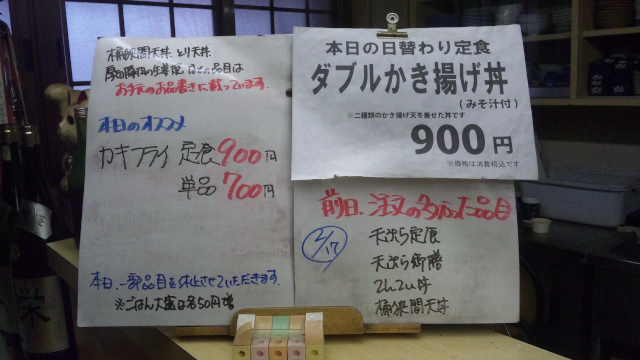 桶狭間天丼 とり天丼
お手元のお品書きに載っています。
本日のオススメ
カキフライ 定食 900円
単品 700円
本日、一部品目を休止させていただきます。
※ごはん大盛は各50円増
本日の日替わり定食
ダブルかき揚げ丼
(みそ汁付)
※二種類のかき揚げ天を乗せた丼です
900円
※価格は消費税込です
前日、注文の多かった品目
2/17
天ぷら定食
天ぷら御膳
てんてん丼
桶狭間天丼
栄